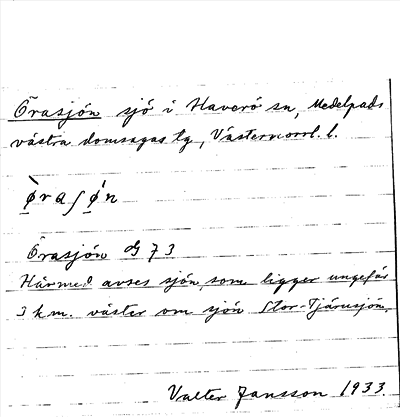 Örasjön sjö i Haverö sn, Medelpads
västra domsagas tg, Västernorrl. l.
ø̀raʃǿn
Örasjön dG 73
Härmed avses sjön, som ligger ungefär
3 km. väster om sjön Stor-Tjärusjön.
Valter Jansson 1933.